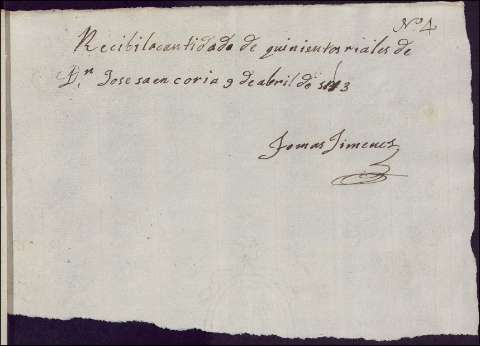 Nº 4
Recibi lacantidada de quinientos riales de
Dn. Jose saen coria 9 de abril do
Jomas Jimenes